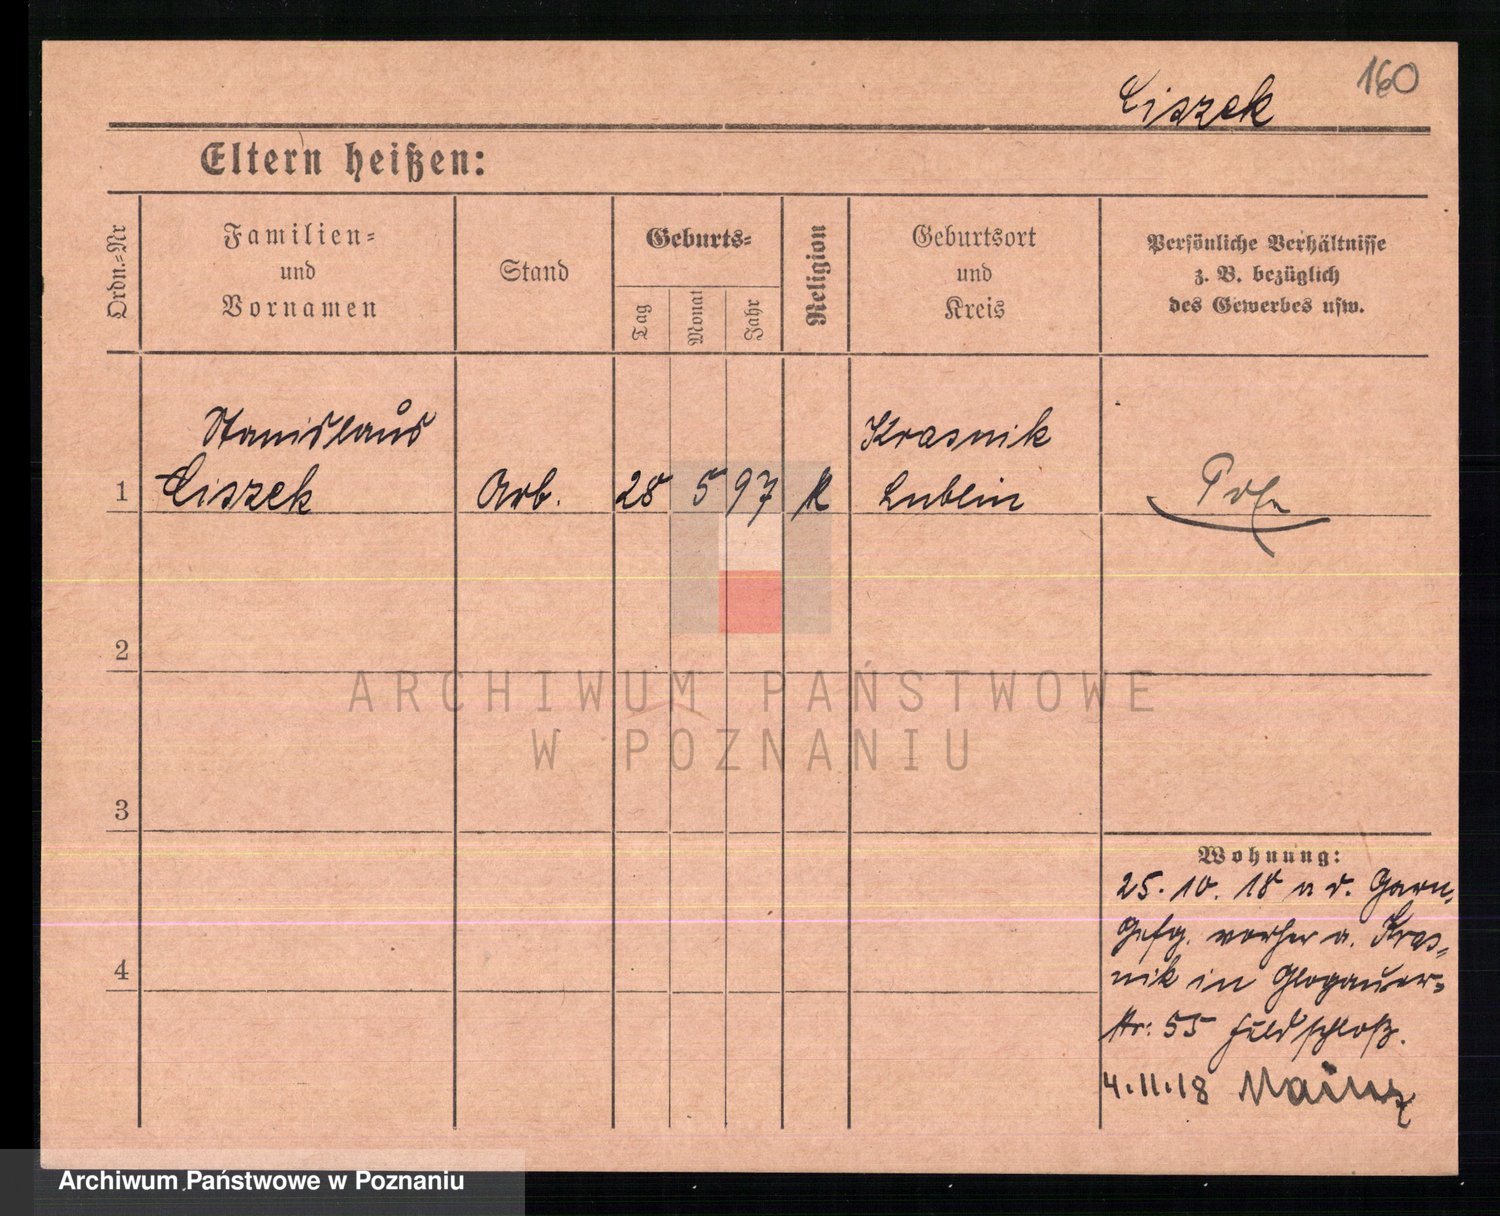 160
Ciszek
Eltern heißen:
Ordn.-Nr
Familien-
und
Vornamen
Stand
Geburts-
Tag
Monat
Jahr
Religion
Geburtsort
und
Kreis
Persönliche Verhältnisse
z. B. bezüglich
des Gewerbes usw.
Stanislaus
Krasnik
1
Ciszek
Arb.
28
5
97
K
Lublin
2
ARCHIWUM PAŃSTWOWE
W POZNANIU
3
Wohnung:
25. 10. 18 a d. Garn.
Gefg. vorher a. Kras-
4
nik in Glogauer-
str. 55 Feldschloß.
4.11.18 Mainz
Archiwum Państwowe w Poznaniu